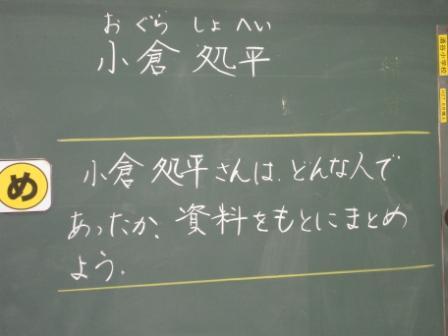 おぐら しょへい
小倉 処平
め
小倉 処平さんは、どんな人で
あったか、資料をもとにまとめ
よう.